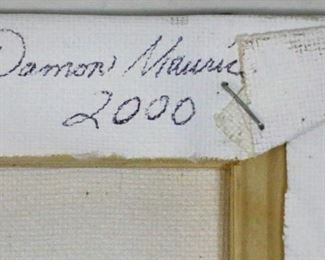 Damon Mauric
2000